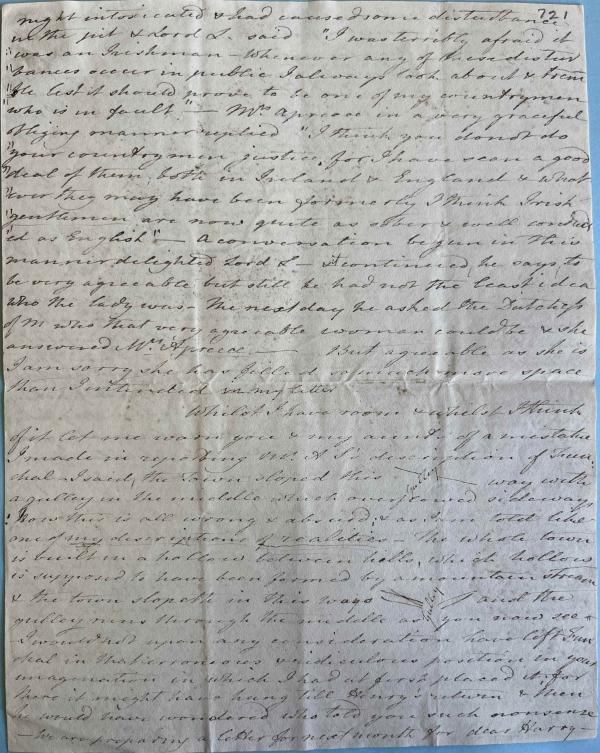 night intoxicated & had caused some disturbance 721
in the pit & Lord L. said "I was terribly afraid it
"was an Irishman – Whenever any of these distur
"bances occur in public I always look about & trem
"ble lest it should prove to be one of my countrymen
"who is in fault" – Mrs Apreece in a very graceful
obliging manner replied "I think you do not do
"your countrymen justice, for I have seen a good
"deal of them, both in Ireland & England & what
"ever they may have been formerly I think Irish
"gentlemen are now quite as sober & well conduct
"ed as English" – A conversation begun in this
manner delighted Lord L – & it continued, he says, to
be very agreeable but still he had not the least idea
who the lady was. The next day he asked the Dutchess
of M who that very agreeable woman could be & she
answered Mrs Apreece. — But agreeable as she is
I am sorry she has filled so much more space
than I intended in my letter
Whilst I have room & whilst I think
of it let me warn you & my aunts of a mistake
I made in reporting Mr A S's description of Fun
chal – I said, the Town sloped this Gulley way with
a gulley in the middle which overflowed sideways
Now this is all wrong & absurd; & as I am told like
one of my descriptions of realities – The whole town
is built in a hollow between hills, which hollow
is supposed to have been formed by a mountain stream
& the town slopeth in this ways Gulley and the
gulley runs through the middle as you now see –
I would not upon any consideration have left Fun
chal in that erroneous & ridiculous position in your
imagination in which I had at first placed it for
there it might have hung till Henry's return & then
he would have wondered who told you such nonsense
– We are preparing a letter for next month for dear Harry –